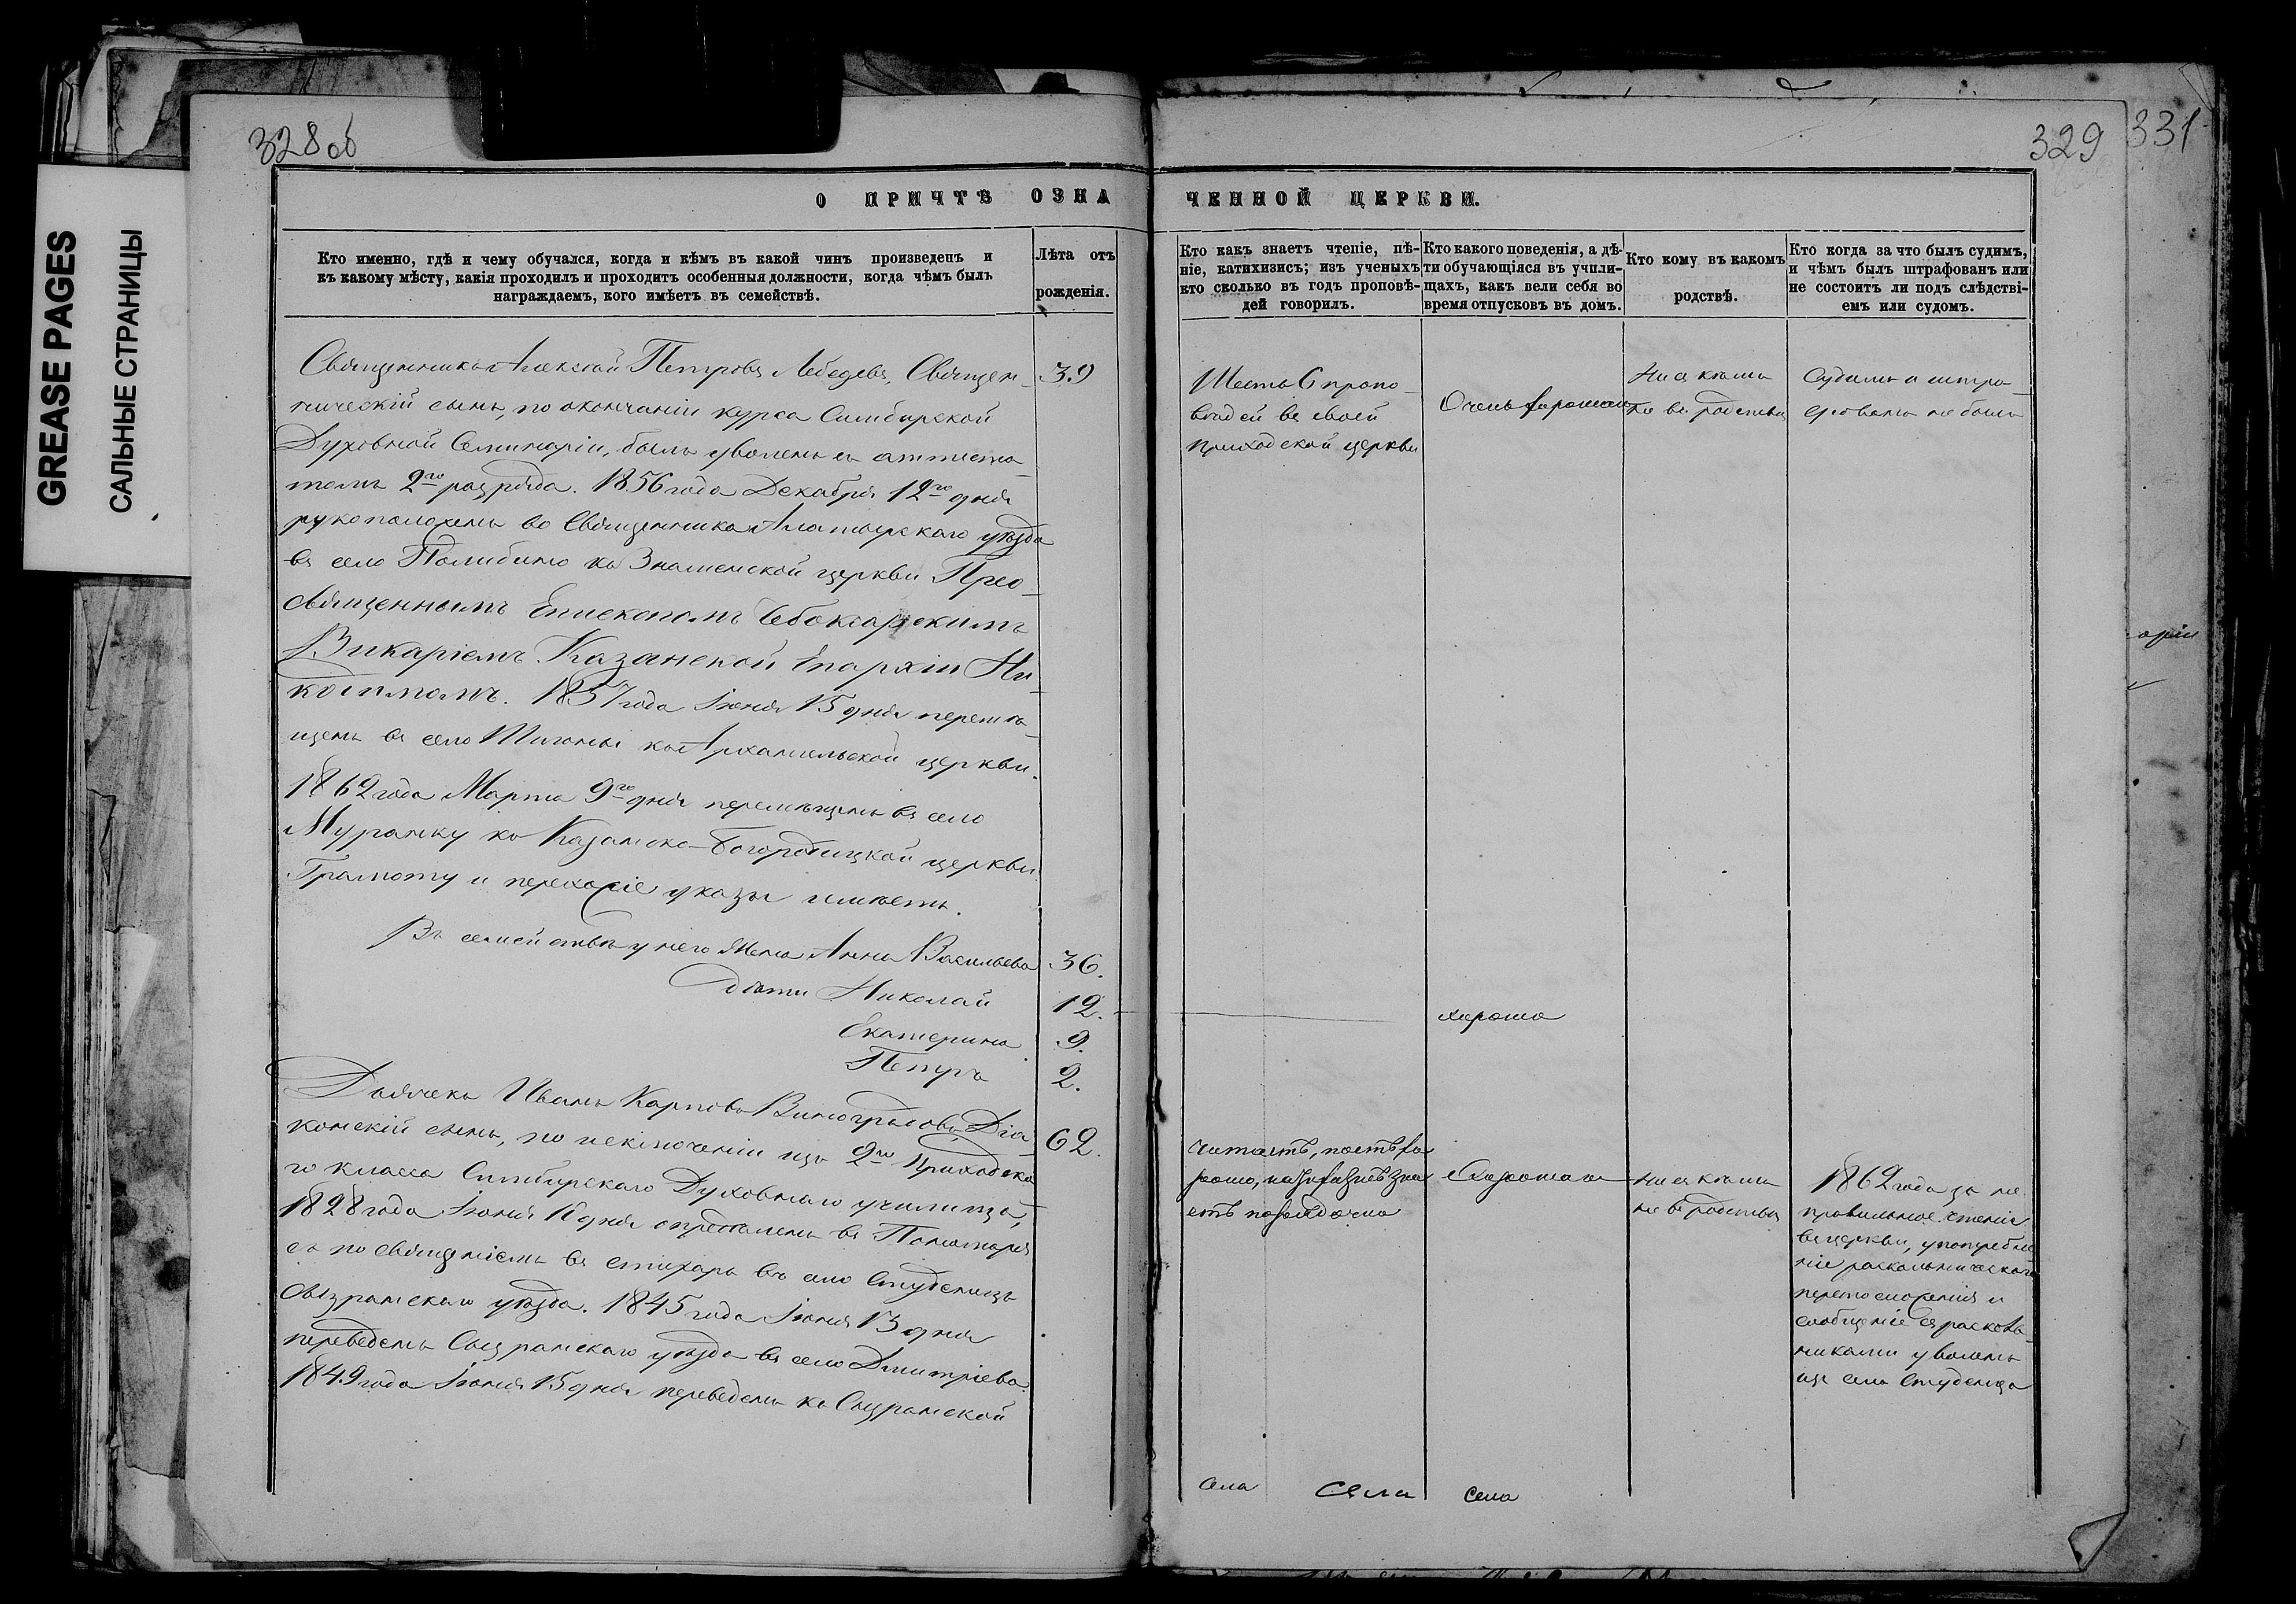 GREASE PAGES
САЛЬНЫЕ СТРАНИЦЫ
328 об
329
331
О ПРИЧТѢ ОЗНА
ЧЕННОЙ ЦЕРКВИ.
Кто именно, гдѣ и чему обучался, когда и кѣмъ въ какой чинъ произведенъ и
къ какому мѣсту, какія проходилъ и проходитъ особенныя должности, когда чѣмъ былъ
награждаемъ, кого имѣетъ въ семействѣ.
Лѣта отъ
рожденія.
Священникъ Алексѣй Петровъ Лебедевъ, Священ-
39
ническій сынъ, по окончаніи курса Симбирской
Духовной Семинаріи, былъ уволенъ съ аттеста-
томъ 2го разряда. 1856 года Декабря 12го дня
рукоположенъ во Священника Алатырскаго уѣзда
въ село Полибино къ Знаменской церкви Прео-
священнымъ Епископомъ Чебоксарскимъ
Викаріемъ Казанской Епархіи Ни-
кодимомъ. 1857 года Іюня 15 дня перемѣ-
щенъ въ село къ Архангельской церкви.
1862 года Марта 9го дня перемѣщенъ въ село
Муранку къ Казанско-Богородицкой церкви.
Грамоту и перехожіе указы имѣетъ.
Въ семействѣ у него Жена Анна Васильева
36.
дѣти Николай
12.
Екатерина
9.
Петръ
2.
Дьячекъ Иванъ Карповъ Виноградовъ, Діа-
конскій сынъ, по исключеніи изъ 2го Приходска-
62.
го класса Симбирскаго Духовнаго училища,
1828 года Іюня 16 дня опредѣленъ въ Пономаря
съ посвященіемъ въ стихарь въ село Студенецъ
Сызранскаго уѣзда. 1845 года Іюня 13 дня
переведенъ Сызранскаго уѣзда въ село Дмитріево.
1849 года Іюня 15 дня переведенъ къ Сызранской
Кто какъ знаетъ чтеніе, пѣ-
ніе, катихизисъ; изъ ученыхъ
кто сколько въ годъ проповѣ-
дей говорилъ.
Кто какого поведенія, а дѣ-
ти обучающіяся въ учили-
щахъ, какъ вели себя во
время отпусковъ въ домъ.
Кто кому въ какомъ
родствѣ.
Кто когда за что былъ судимъ,
и чѣмъ былъ штрафованъ или
не состоитъ ли подъ слѣдстві-
емъ или судомъ.
Шесть 6 пропо-
вѣдей въ своей
приходской церкви
Очень хорошаго
Ни съ кѣмъ
не въ родствѣ
Судимъ и штра-
фованъ не былъ
хорошо
читаетъ, поетъ хо-
рошо, катихизисъ зна-
етъ
Хорошаго
Ни съ кѣмъ
не въ родствѣ
1862 года за не
правильное чтеніе
въ церкви, употребле-
ніе раскольническаго
перстосложенія и
сообщеніе съ расколь-
никами уволенъ
изъ села Студенца
села
села
села
аріи